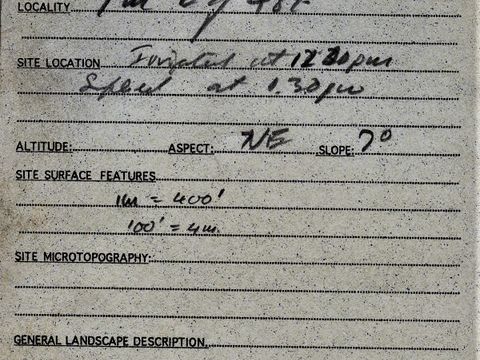 LOCALITY
SITE LOCATION at 12 30pm
Speed at 1.30pm
ALTITUDE: ASPECT: NE SLOPE: 7°
SITE SURFACE FEATURES
1m = 400'
100' = 4m.
SITE MICROTOPOGRAPHY:
GENERAL LANDSCAPE DESCRIPTION.